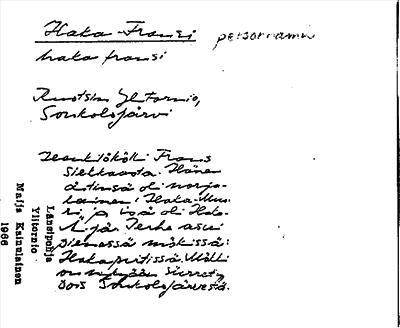 Haka-Fransi personnamn
haka fransi
Ruotsin Ylitornio,
Soukolojärvi
Henkilököll Frans
Siekkaasta. Hänen
äitinsä oli norja-
lainen, Haka-Mus-
ri, ja isä oli Haka-
Perhe asui
pienessä mökissä:
Hakapirtissä. Mökki
on nykyään siirretty
pois Soukolojärvestä.
Länsipohja
Ylitornio
Maija Kainulainen
1966